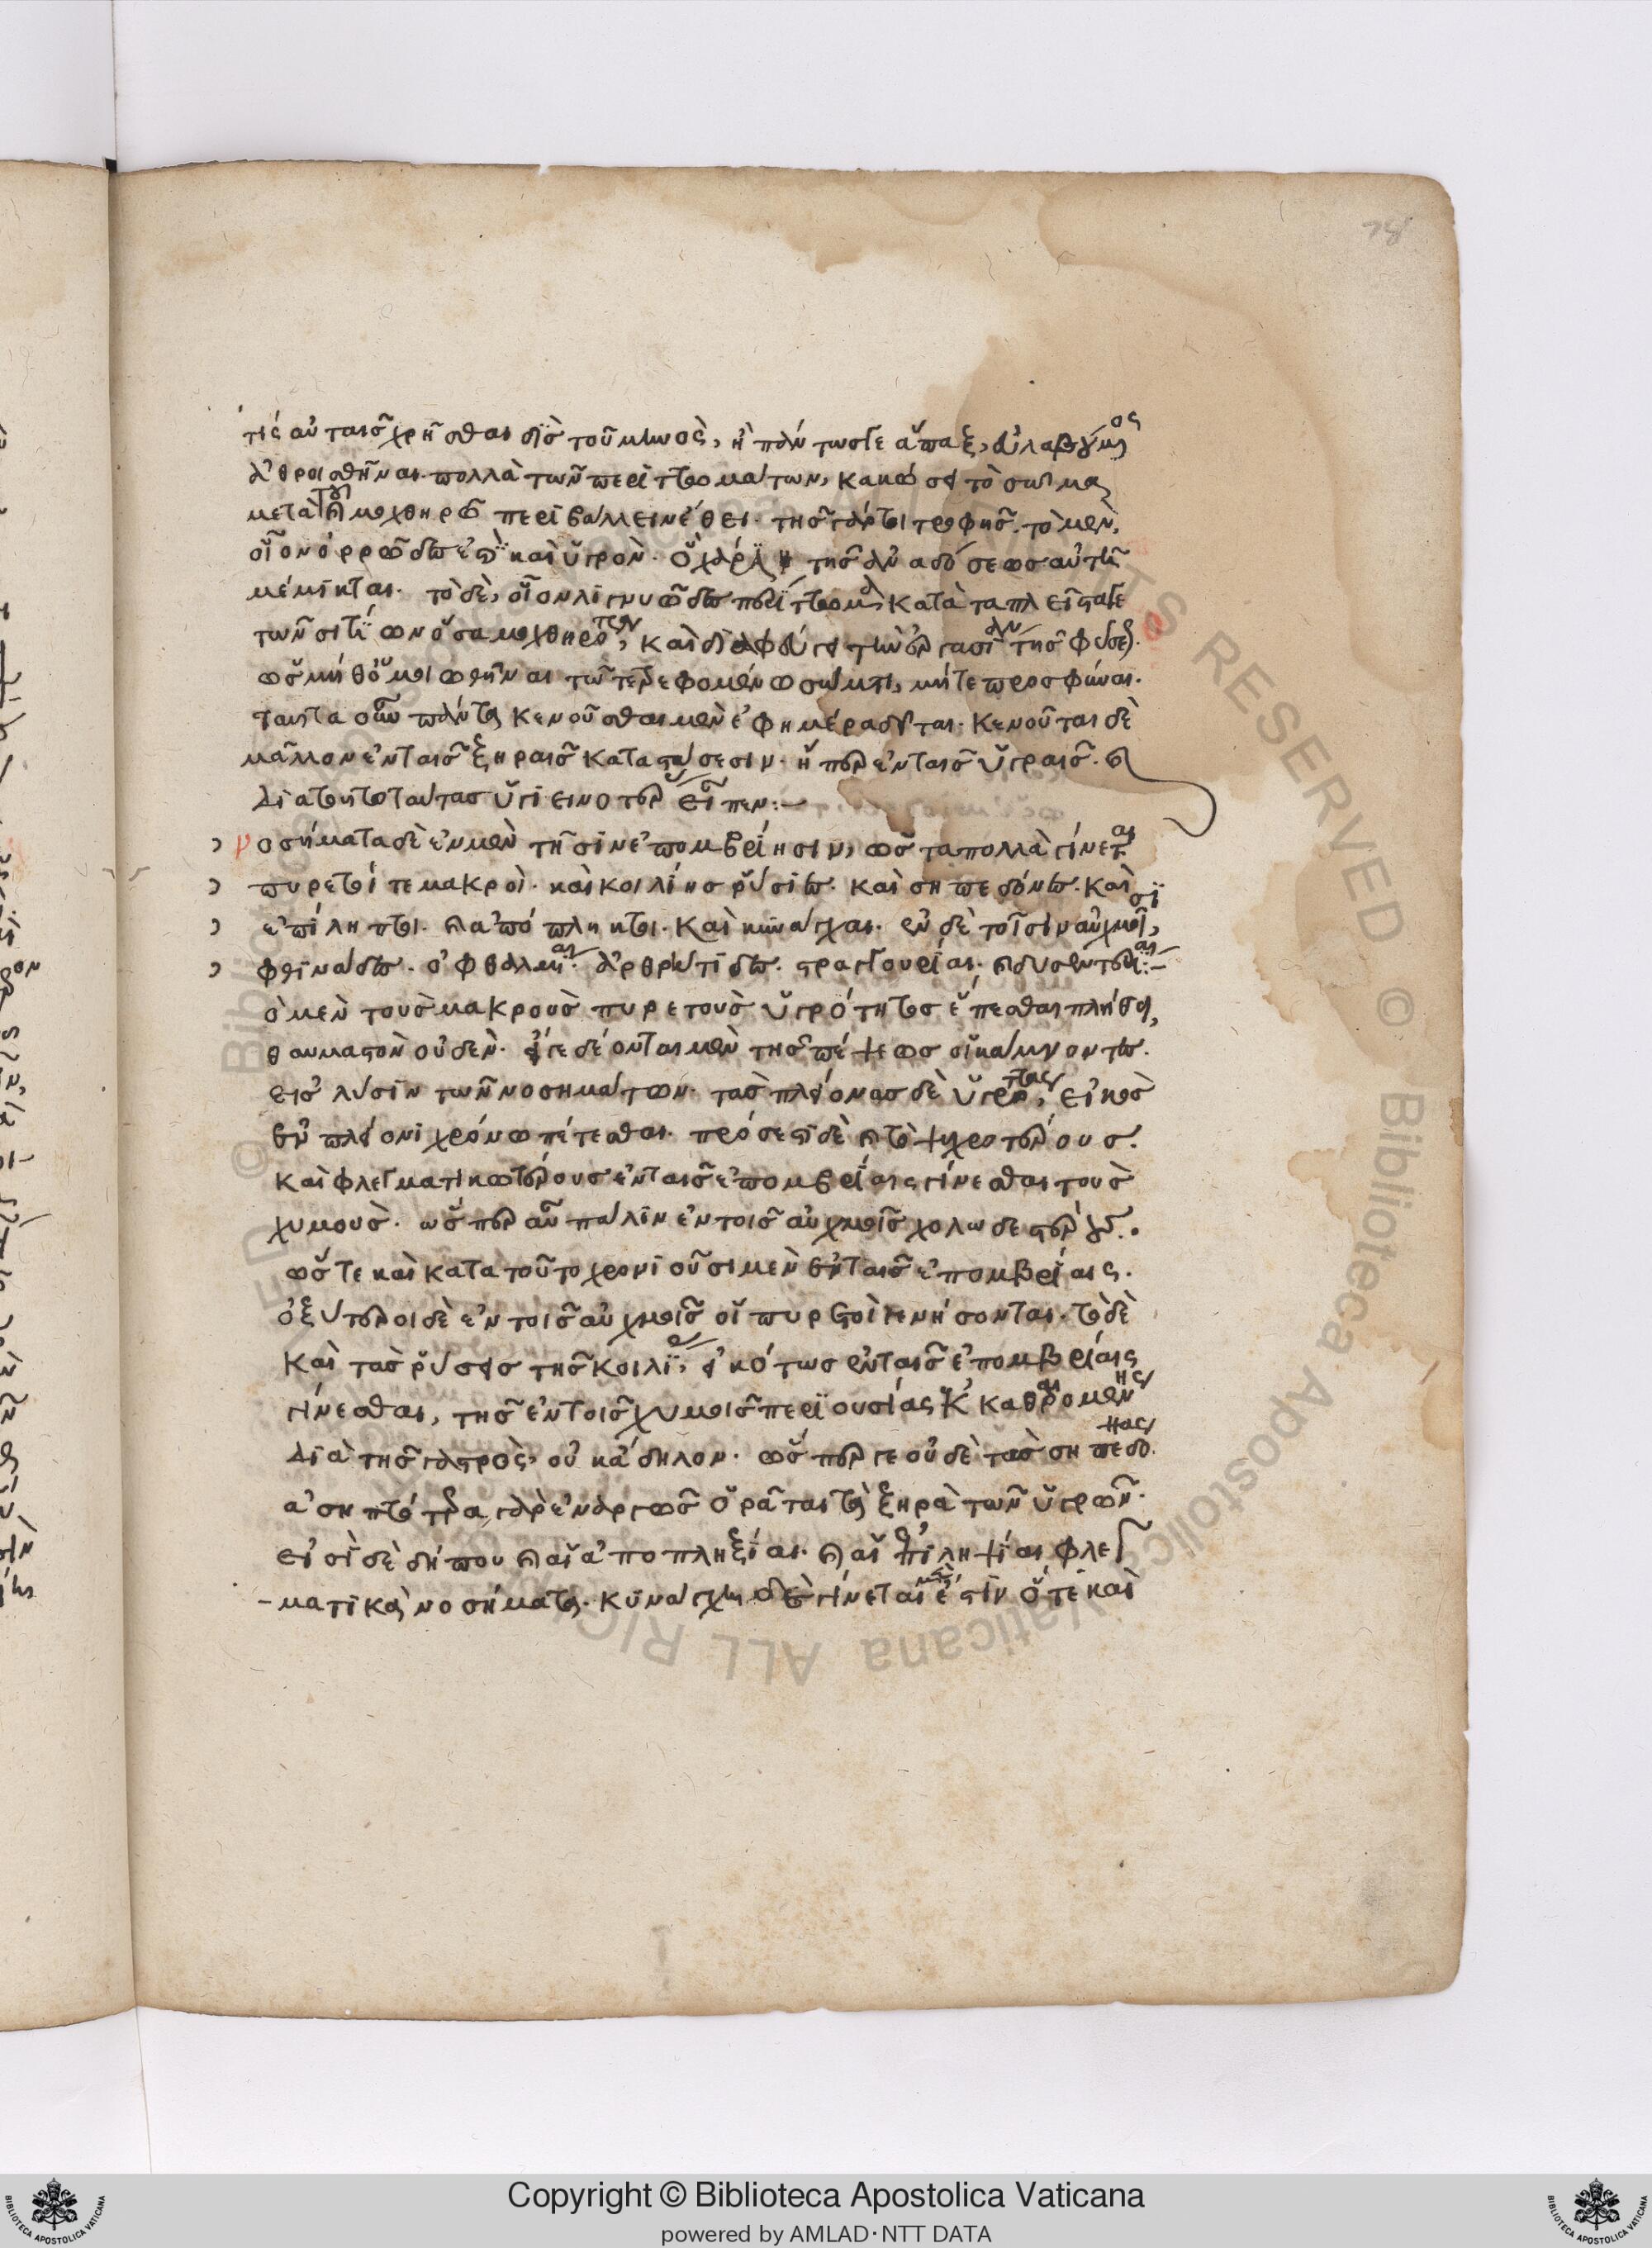 τις αὐταῖς χρῆσθαι δὶς τοῦ μηνὸς, ἢ πάντως γε ἅπαξ, εὐλαβούμενος
ἀθροισθῆναι πολλὰ τῶν περιττωμάτων, κακώσει τὸ σῶμα
μετὰ τοῦ καὶ μοχθηρῶ περιβάλλειν ἔθει. τῆς γάρ τοι τροφῆς, τὸ μὲν,
οἷον ὀρρῶδες ἐστι καὶ ὑγρὸν. ὃ χάριν τῆς ἀναδόσεως αὐτῆ
μέμικται. τὸ δὲ, οἷον λιγνυῶδες περίττωμα, κατὰ τὰ πλεῖστά γε
τῶν σιτίων ὅσα μοχθηρότερον, καὶ διαφεύγει τὴν ἐργασίαν τῆς φύσεως.
ὡς μήθ' ὁμοιωθῆναι τῶ τρεφομένω σώματι, μήτε προσφῦναι.
ταῦτα οὖν πάντα κενοῦσθαι μὲν ἐφημέρας δεῖται. κενοῦται δὲ
μᾶλλον ἐν ταῖς ξηραῖς καταστάσεσιν. ἤπερ ἐν ταῖς ὑγραῖς. καὶ
διατοῦτο ταύτας ὑγιεινοτέρας εἶπεν:-
νοσήματα δὲ ἐν μὲν τῆσιν ἐπομβρίησιν, ὡς τὰ πολλὰ γίνεται
πυρετοί τε μακροὶ. καὶ κοιλίης ῥύσιες. καὶ σηπεδόνες. καὶ
ἐπίληπτοι. καὶ ἀπόπληκτοι. καὶ κυνάγχαι. ἐν δὲ τοῖσιν αὐχμοῖσι,
φθινάδες. ὀφθαλμίαι. ἀρθρίτιδες. στραγγουρίαι. καὶ δυσεντερίαι:-
ὁ μὲν τοὺς μακροὺς πυρετοὺς ὑγρότητος ἕπεσθαι πλήθει,
θαυμαστὸν οὐδὲν. εἴγε δέονται μὲν τῆς πέψεως οἱ κάμνοντες.
εἰς λύσιν τῶν νοσημάτων. τὰς πλείονας δὲ ὑγρότητας, εἰκὸς
ἐν πλείονι χρόνω πέττεσθαι. πρόσεστι δὲ καὶ τὸ ψυχροτέρους.
καὶ φλεγματικωτέρους ἐν ταῖς ἐπομβρίαις γίνεσθαι τοὺς
χυμοὺς. ὥσπερ αὖ πάλιν ἐν τοῖς αὐχμοῖς χολωδεστέρους.
ὥστε καὶ κατὰ τοῦτο χρονιοῦσι μὲν ἐν ταῖς ἐπομβρίαις.
ὀξύτεροι δὲ ἐν τοῖς αὐχμοῖς οἱ πυρετοὶ γενήσονται. τὸ δὲ
καὶ τὰς ῥύσεις τῆς κοιλίας, εἰκότως ἐν ταῖς ἐπομβρίαις
γίνεσθαι, τῆς ἐν τοῖς χυμοῖς περιουσίας ἐκκαθαιρομένης
διὰ τῆς γαστρὸς, οὐκ ἄδηλον. ὥσπερ γε οὐδὲ τὰς σηπεδόνας.
ἀσηπτότερα γὰρ ἐναργῶς ὁρᾶται τὰ ξηρὰ τῶν ὑγρῶν.
εἰσὶ δὲ δήπου καὶ αἱ ἀποπληξίαι. καὶ αἱ ἐπιληψίαι φλεγ
-ματικὰ νοσήματα. κυνάγχη δὲ γίνεται μὲν ἔστιν ὅτε καὶ